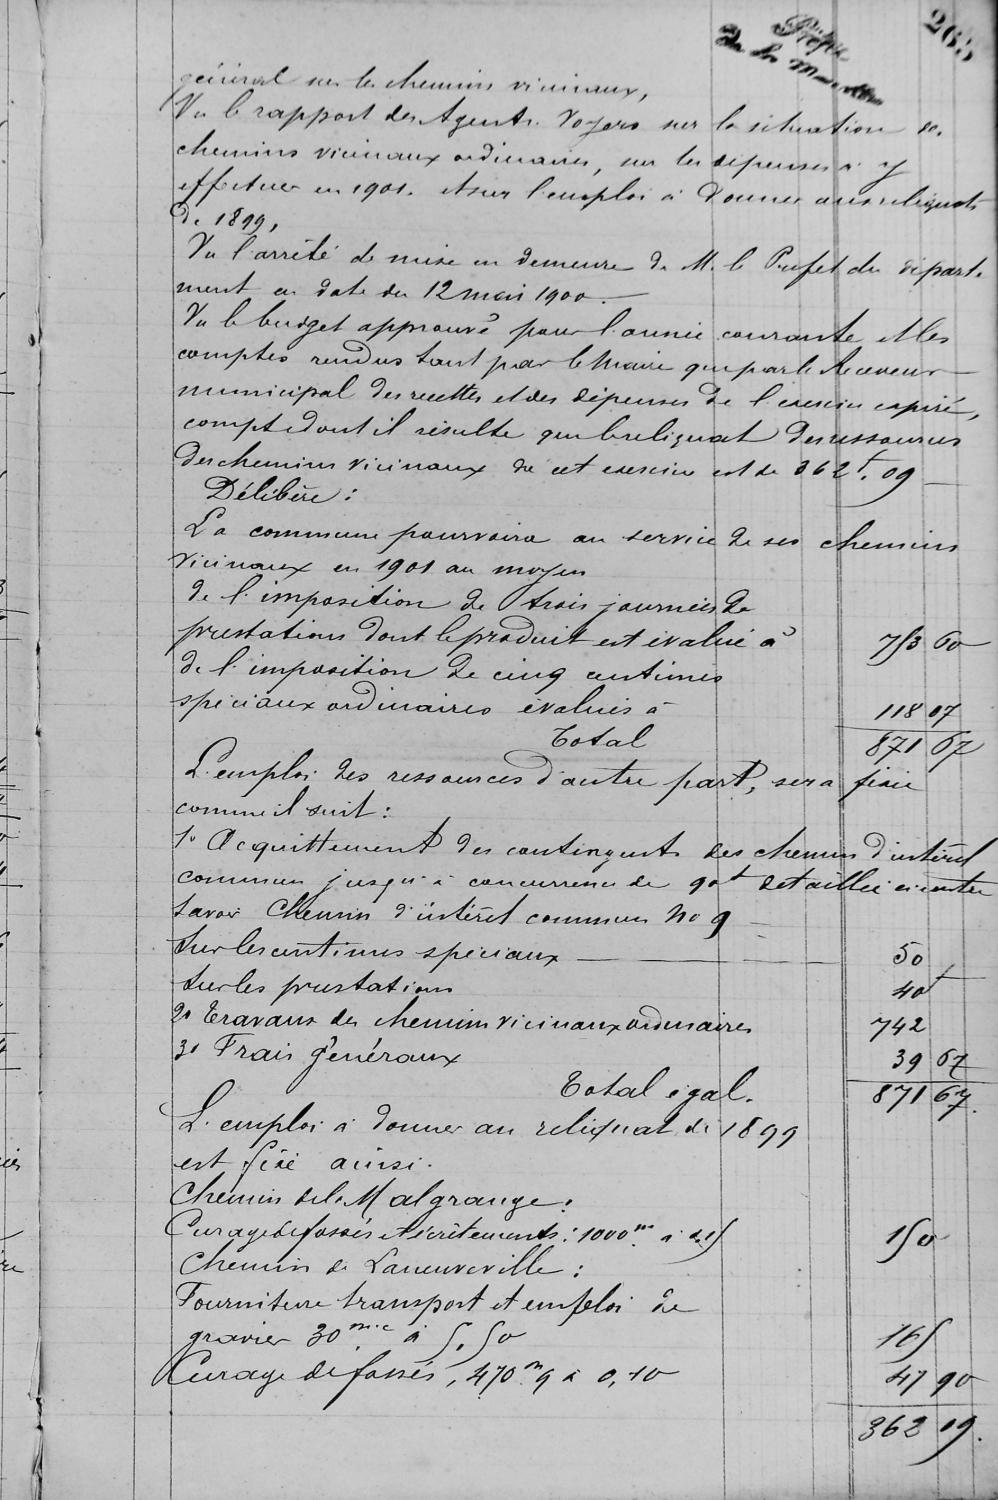 265
Préfec
De la Meurthe
général sur les chemins vicinaux,
Vu le rapport des Agents-Voyers sur la situation des
chemins vicinaux ordinaires, sur les dépenses à y
effectuer en 1901. et sur l'emploi à donner aux reliquats
de 1899,
Vu l'arrêté de mise en demeure de M. le Préfet du départe
ment en date du 12 mai 1900.
Vu le budget approuvé pour l'année courante et les
comptes rendus tant par le Maire que par le Receveur
municipal des recettes et des dépenses de l'exercice expiré,
compte dont il résulte que le reliquat des ressources
des chemins vicinaux de cet exercice est de 362f.09
Délibère :
La commune pourvoira au service de ses chemins
vicinaux en 1901 au moyen
de l'imposition de trois journées de
prestations dont le produit est évalué à 753 60
de l'imposition de cinq centimes
spéciaux ordinaires évalués à 118 07
Total 871 67
L'emploi des ressources d'autre part, sera fixée
comme il suit :
1° Acquittement des contingents des chemins d'intérêt
commun jusqu'à concurrence de 90f détaillée ci contre
Savoir Chemin d'intérêt commun No 9
Sur les centimes spéciaux 50
Sur les prestations 40
2° Travaux des chemins vicinaux ordinaires 742
3° Frais généraux 39 67
Total égal. 871 67.
L'emploi à donner au reliquat de 1899
est fixé ainsi.
Chemin de la Malgrange :
Curage de fossés et décrêtements : 1000m à 0.15 150
Chemin de Laneuveville :
Fourniture transport et emploi de
gravier 30 m.c à 5,50 165
Curage de fossés, 470m9 à 0,10 47 90
362 09.